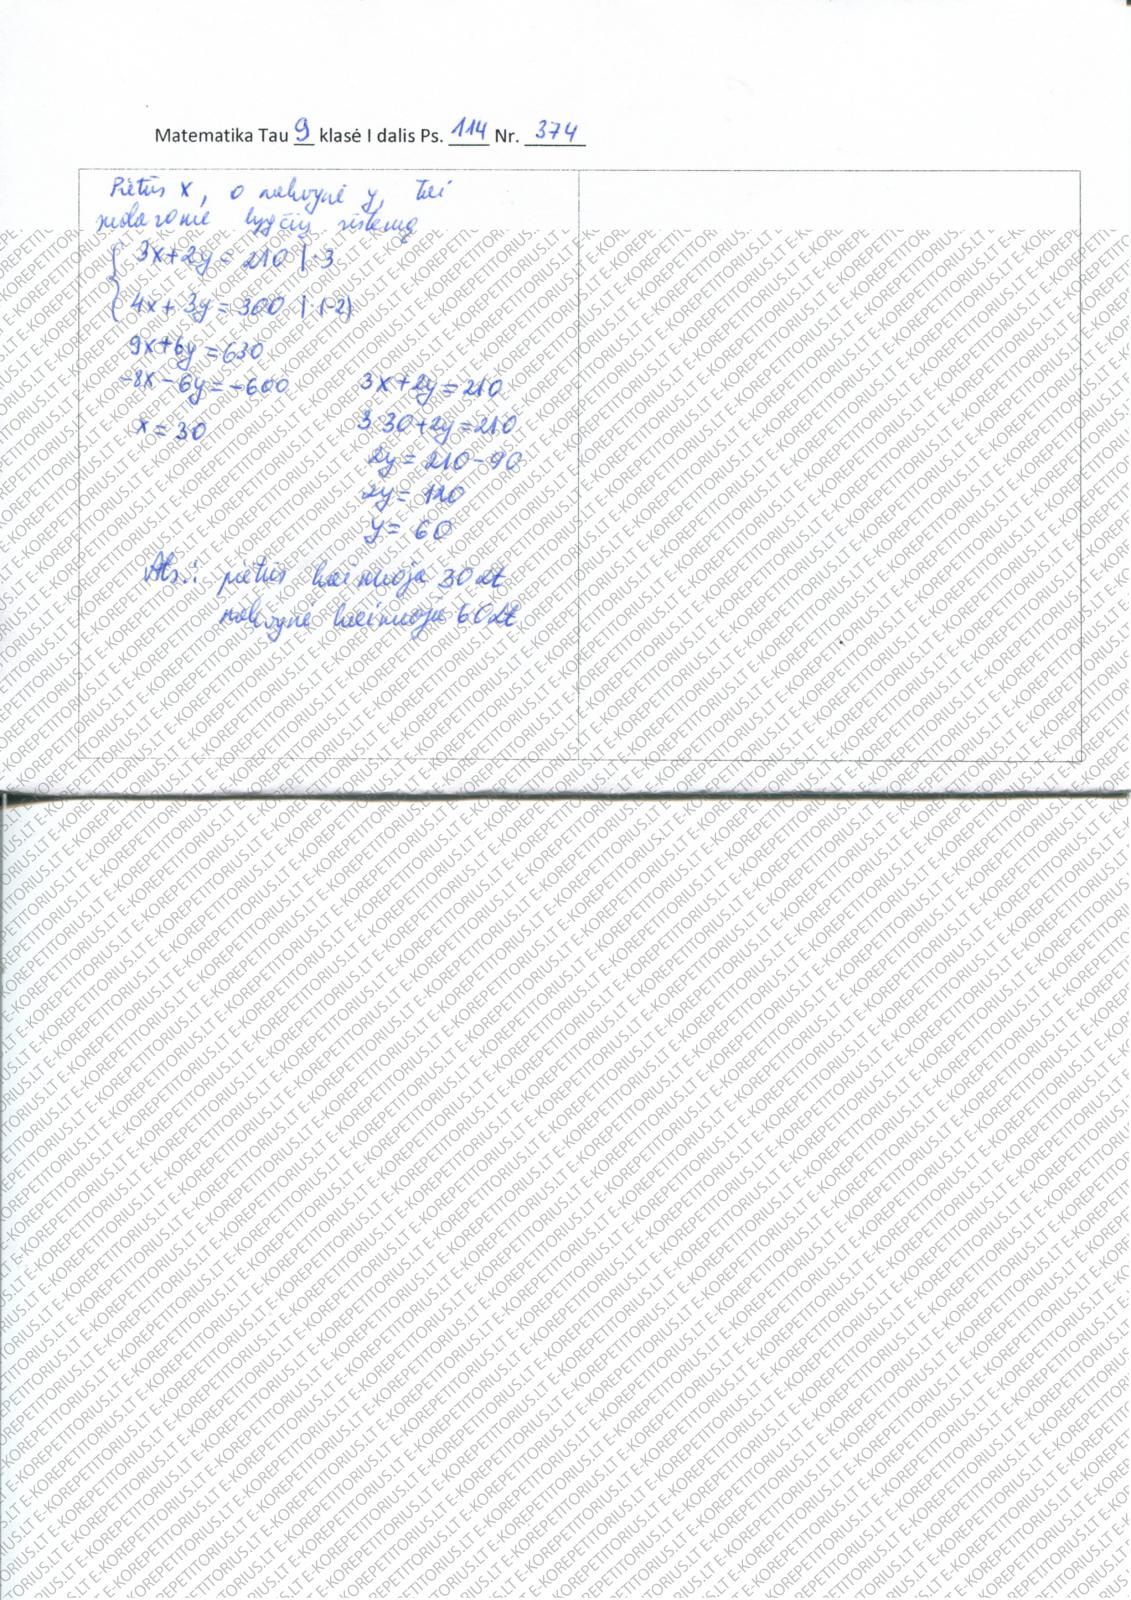 Matematika Tau 9 klasė I dalis Ps. 114 Nr. 374
Pietūs x, o nakvynė y, tai
sudarome lygčių sistemą
3x+2y=210 |·3
4x+3y=300 |·(-2)
9x+6y=630
-8x-6y=-600
x=30
3x+2y=210
3·30+2y=210
2y=210-90
2y=120
y=60
Ats.: pietūs kainuoja 30 Lt
nakvynė kainuoja 60 Lt
E-KOREPETITORIUS.LT